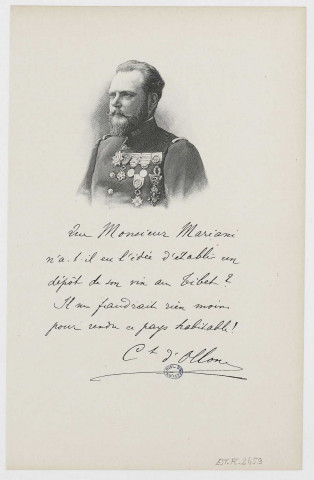 Que Monsieur Mariani
n'a-t-il eu l'idée d'établir un
dépôt de son vin au Tibet ?
Il ne faudrait rien moins
pour rendre ce pays habitable !
Ct d'Ollone